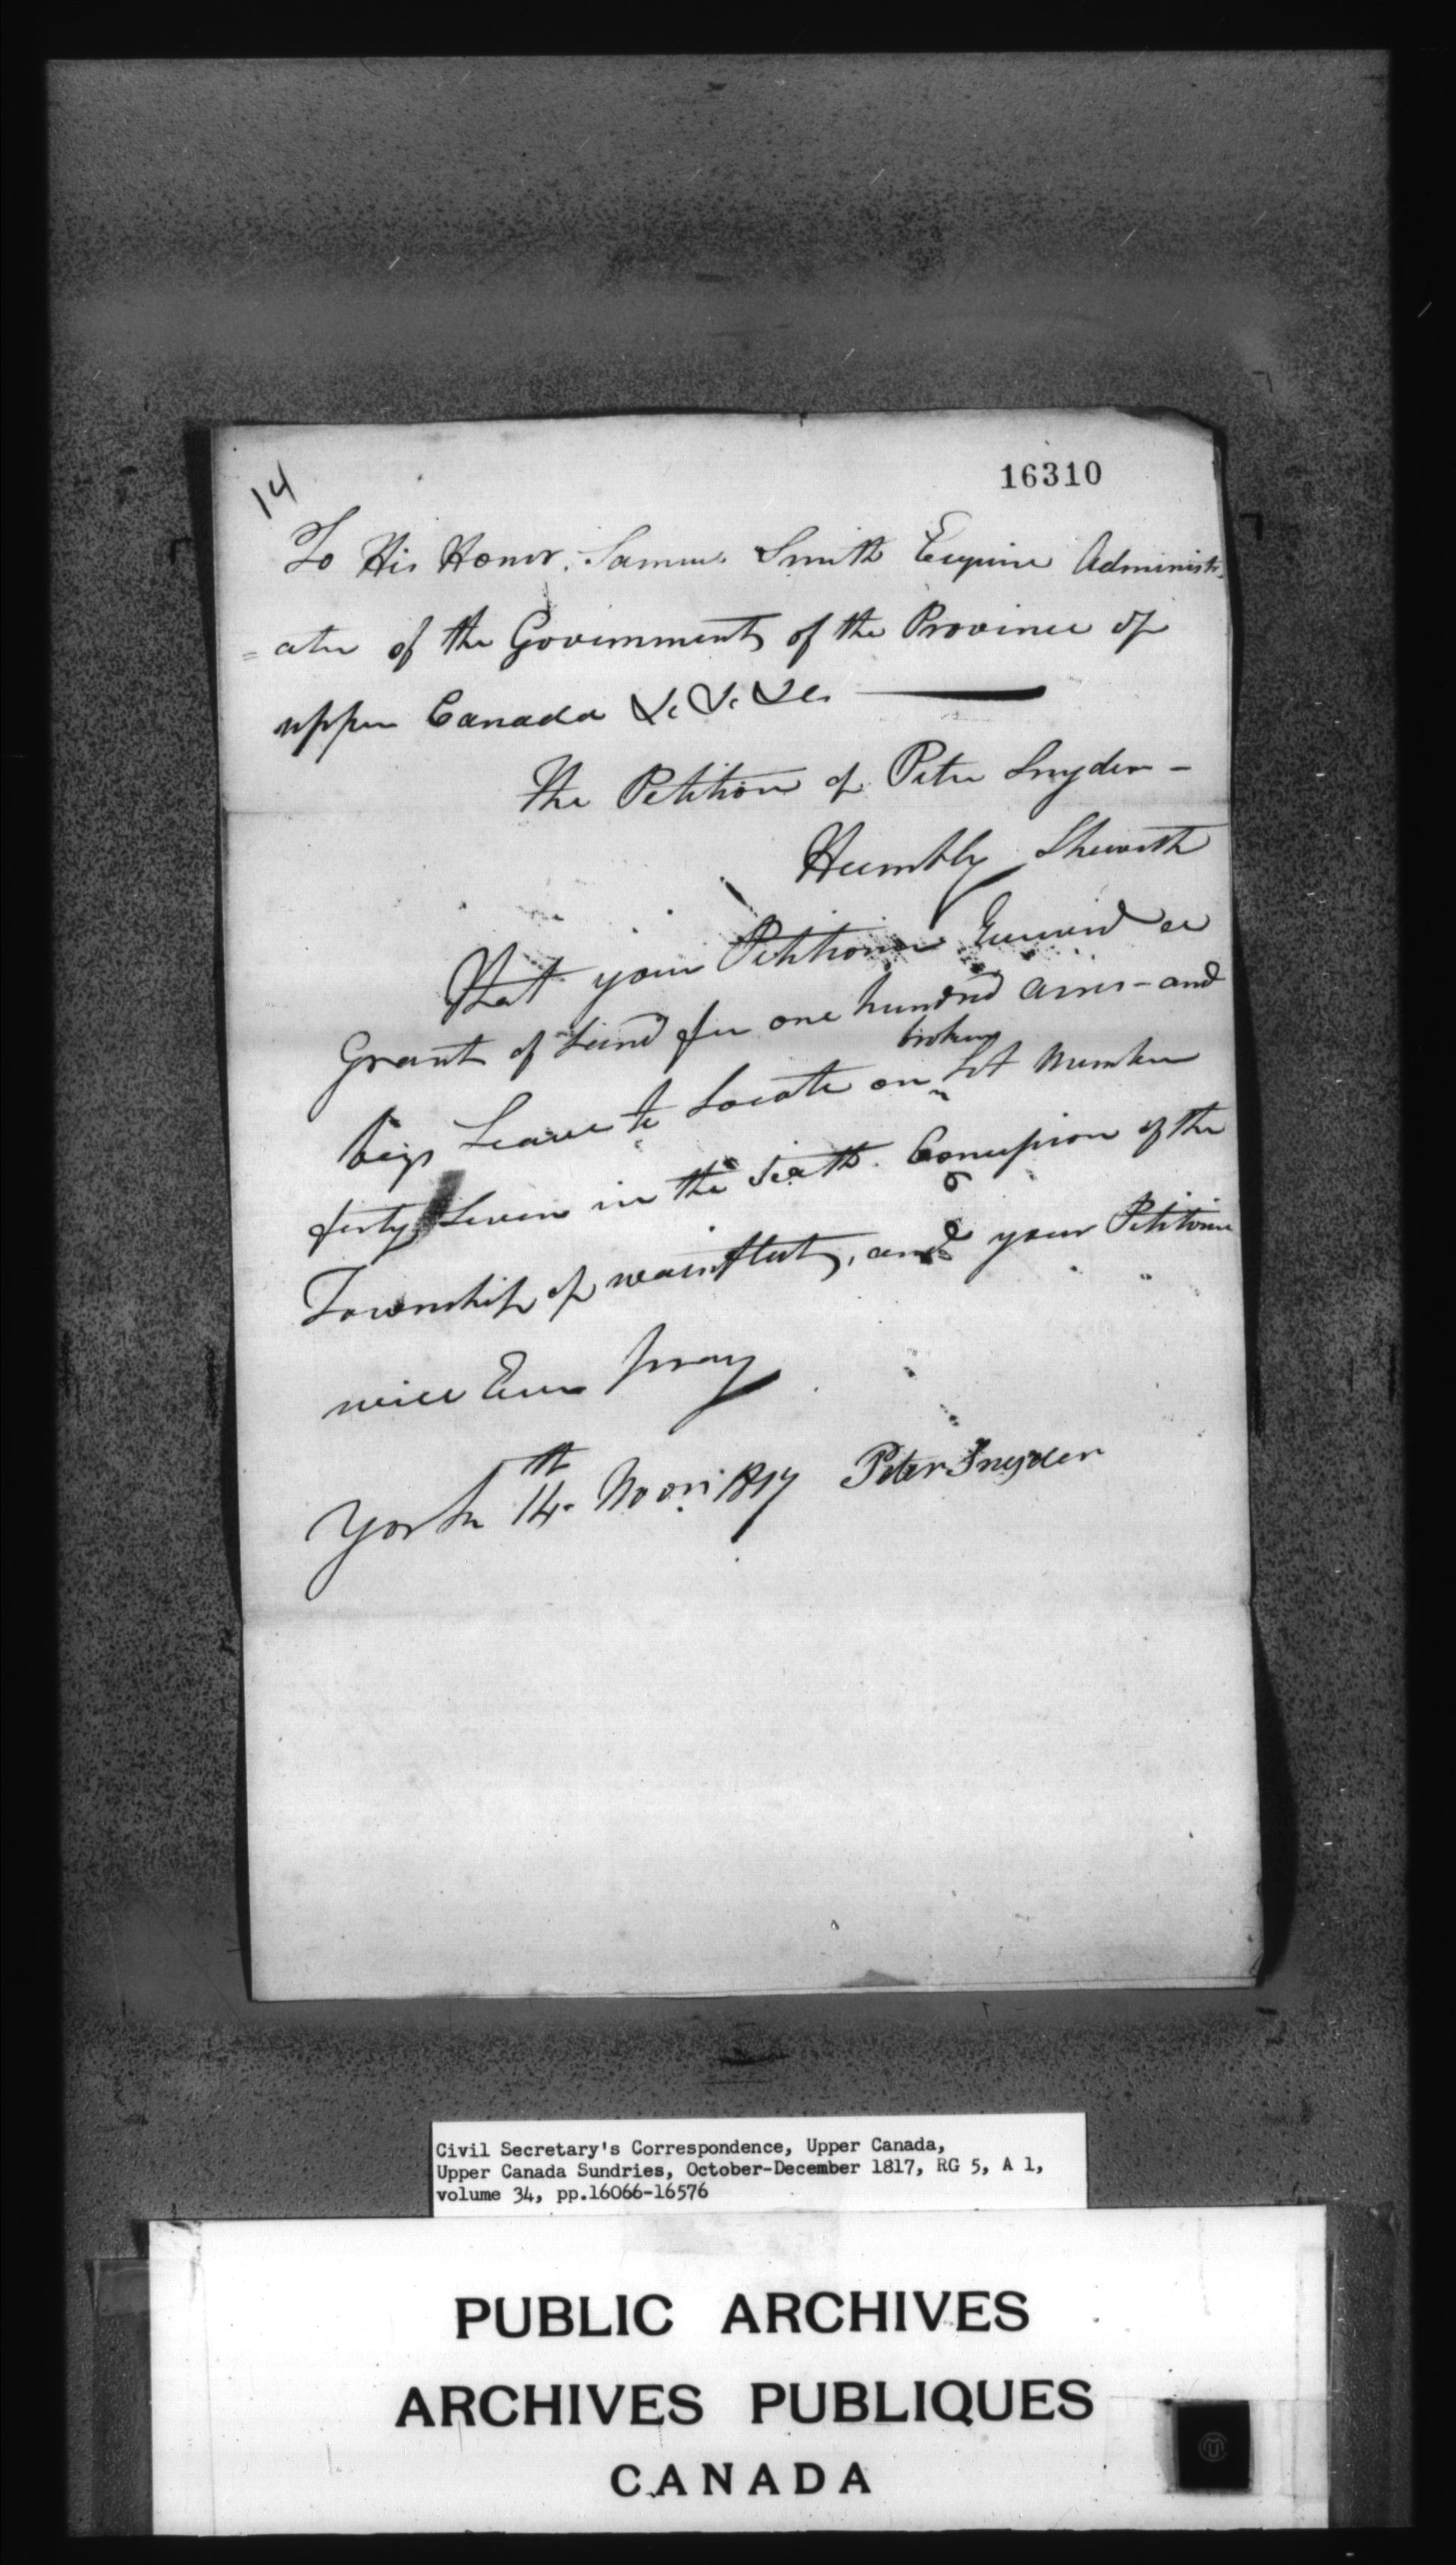 14
16310
To His Honor Samuel Smith Esquire Administr
= ator of the Government of the Province of
upper Canada &c &c &c
The Petition of Peter Snyder -
Humbly Sheweth
That your Petitioner Received a
Grant of Land for one hundred acres - and
broken
begs Leave to Locate on Lot Number
forty Seven in the Sixth Concession of the
6
Township of wainfleet, and your Petitioner
will Ever pray
York 14th Novr 1817 Peter Snyder
Civil Secretary's Correspondence, Upper Canada,
Upper Canada Sundries, October-December 1817, RG 5, A 1,
volume 34, pp.16066-16576
PUBLIC ARCHIVES
ARCHIVES PUBLIQUES
CANADA